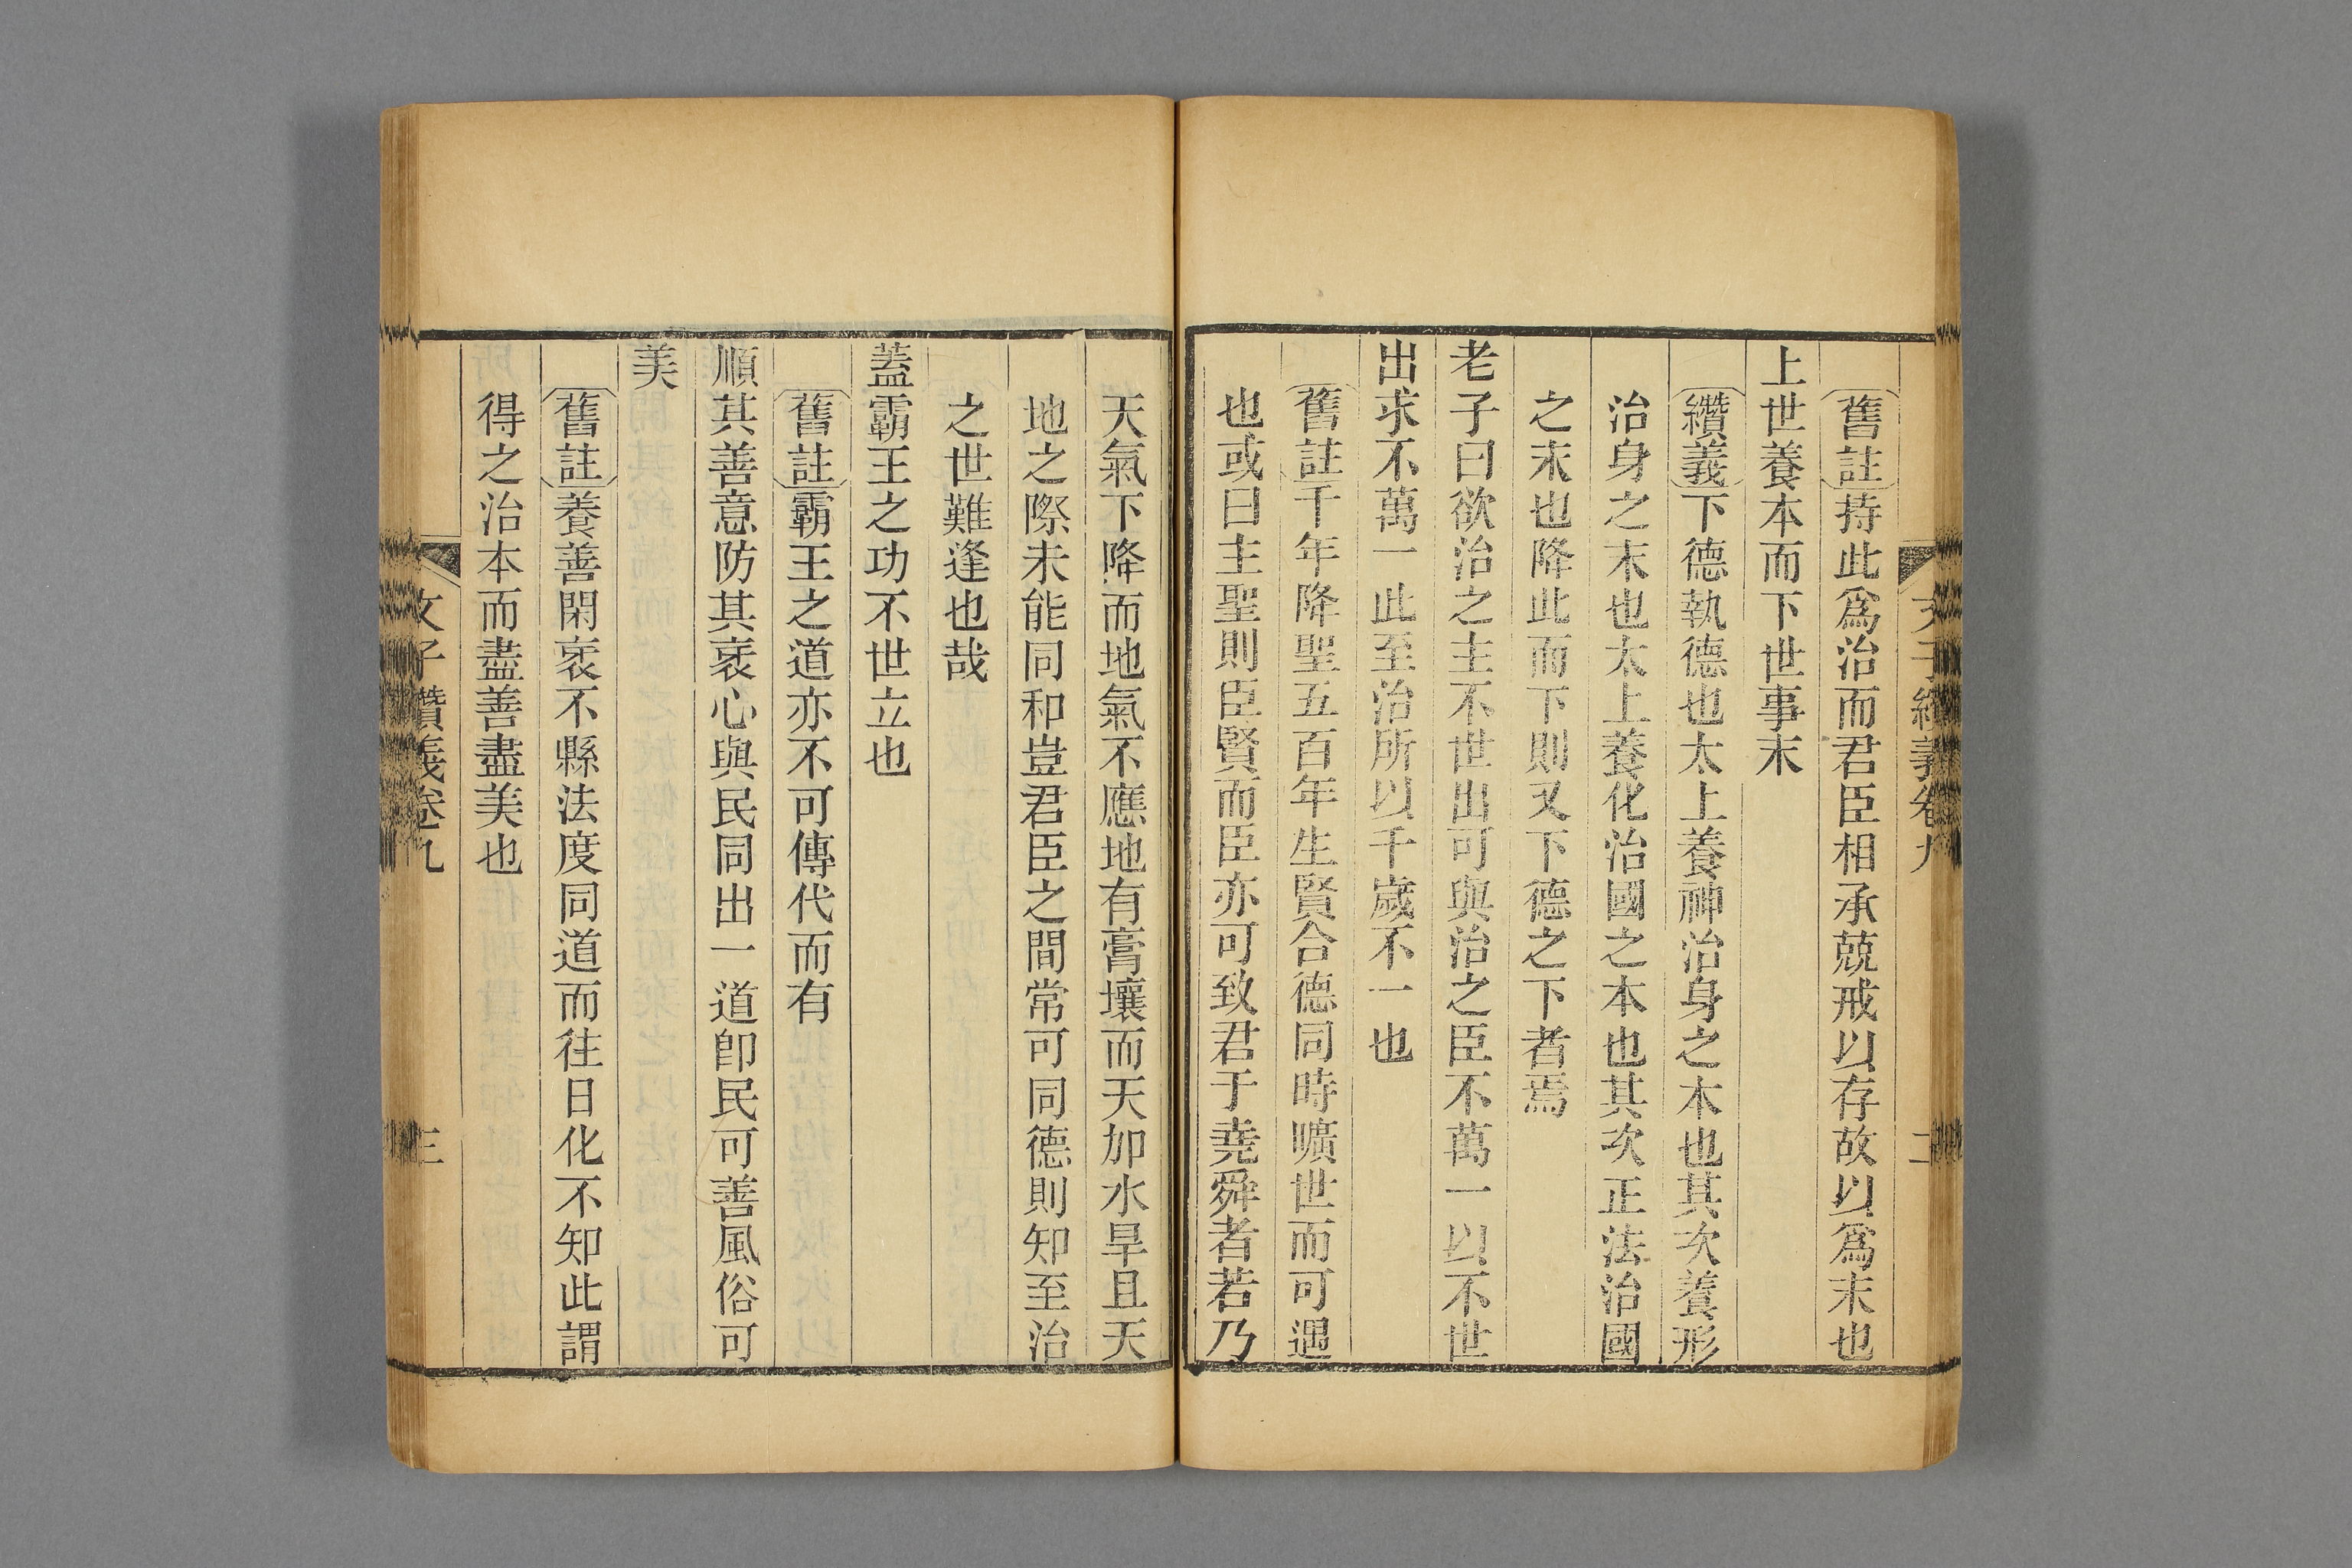 文子纘義卷九 二
舊註持此爲治而君臣相承兢戒以存故以爲末也
上世養本而下世事末
纘義下德執德也太上養神治身之本也其次養形
治身之末也太上養化治國之本也其次正法治國
之末也降此而下則又下德之下者焉
老子曰欲治之主不世出可與治之臣不萬一以不世
出求不萬一此至治所以千歲不一也
舊註千年降聖五百年生賢合德同時曠世而可遇
也或曰主聖則臣賢而臣亦可致君于堯舜者若乃
天氣下降而地氣不應地有膏壤而天加水旱且天
地之際未能同和豈君臣之間常可同德則知至治
之世難逢也哉
蓋霸王之功不世立也
舊註霸王之道亦不可傳代而有
順其善意防其衺心與民同出一道卽民可善風俗可
美
舊註養善閑衺不縣法度同道而往日化不知此謂
得之治本而盡善盡美也
文子纘義卷九 三